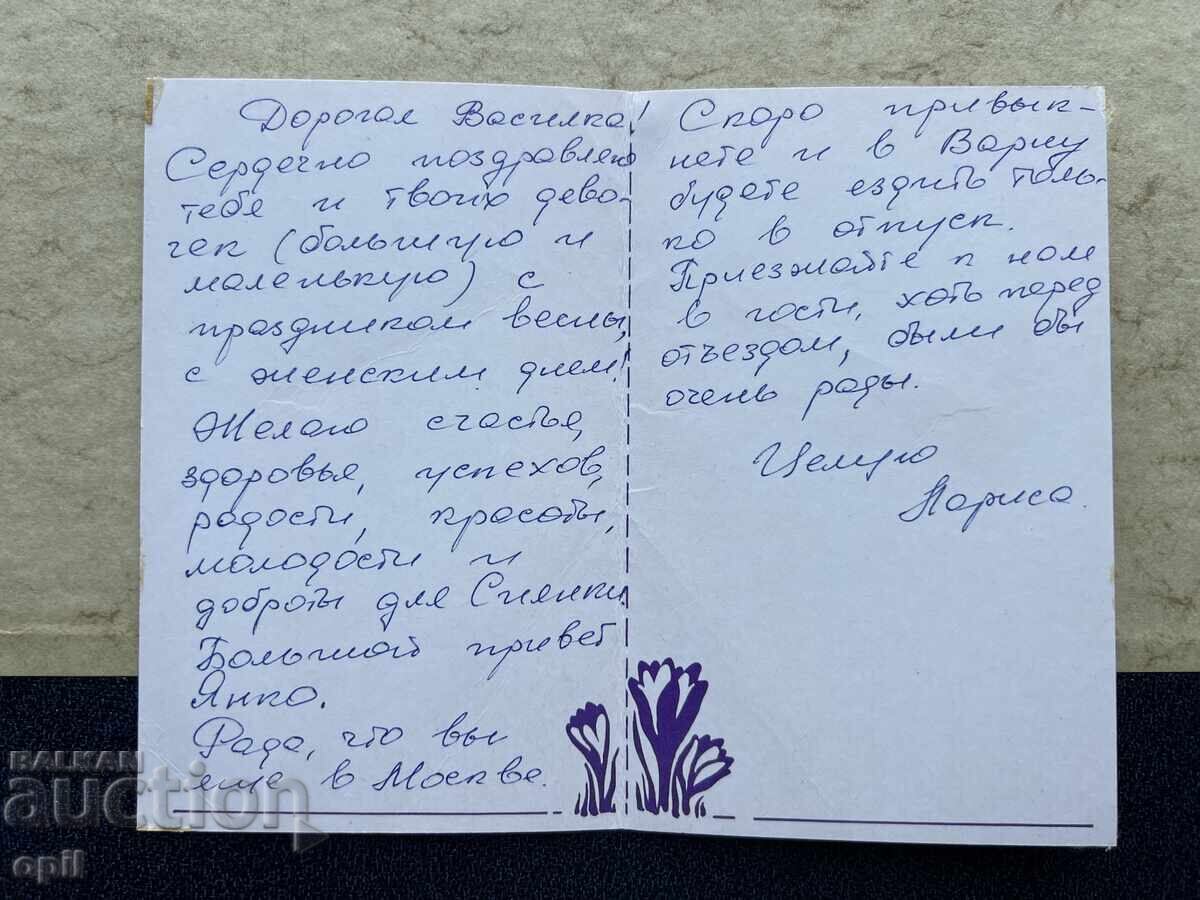 Дорогая Василка!
Сердечно поздравляю
тебя и твоих дево-
чек (большую и
маленькую) с
праздником весны,
с женским днем!
Желаю счастья,
здоровья, успехов,
радости, красоты,
молодости и
доброты для Сиянки.
Большой привет
Янко.
Рада, что вы
еще в Москве.
Скоро привык-
нете и в Варну
будете ездить толь-
ко в отпуск.
Приезжайте к нам
в гости, хоть перед
отъездом, были бы
очень рады.
Целую
Лариса.
BALKAN
auction
opil